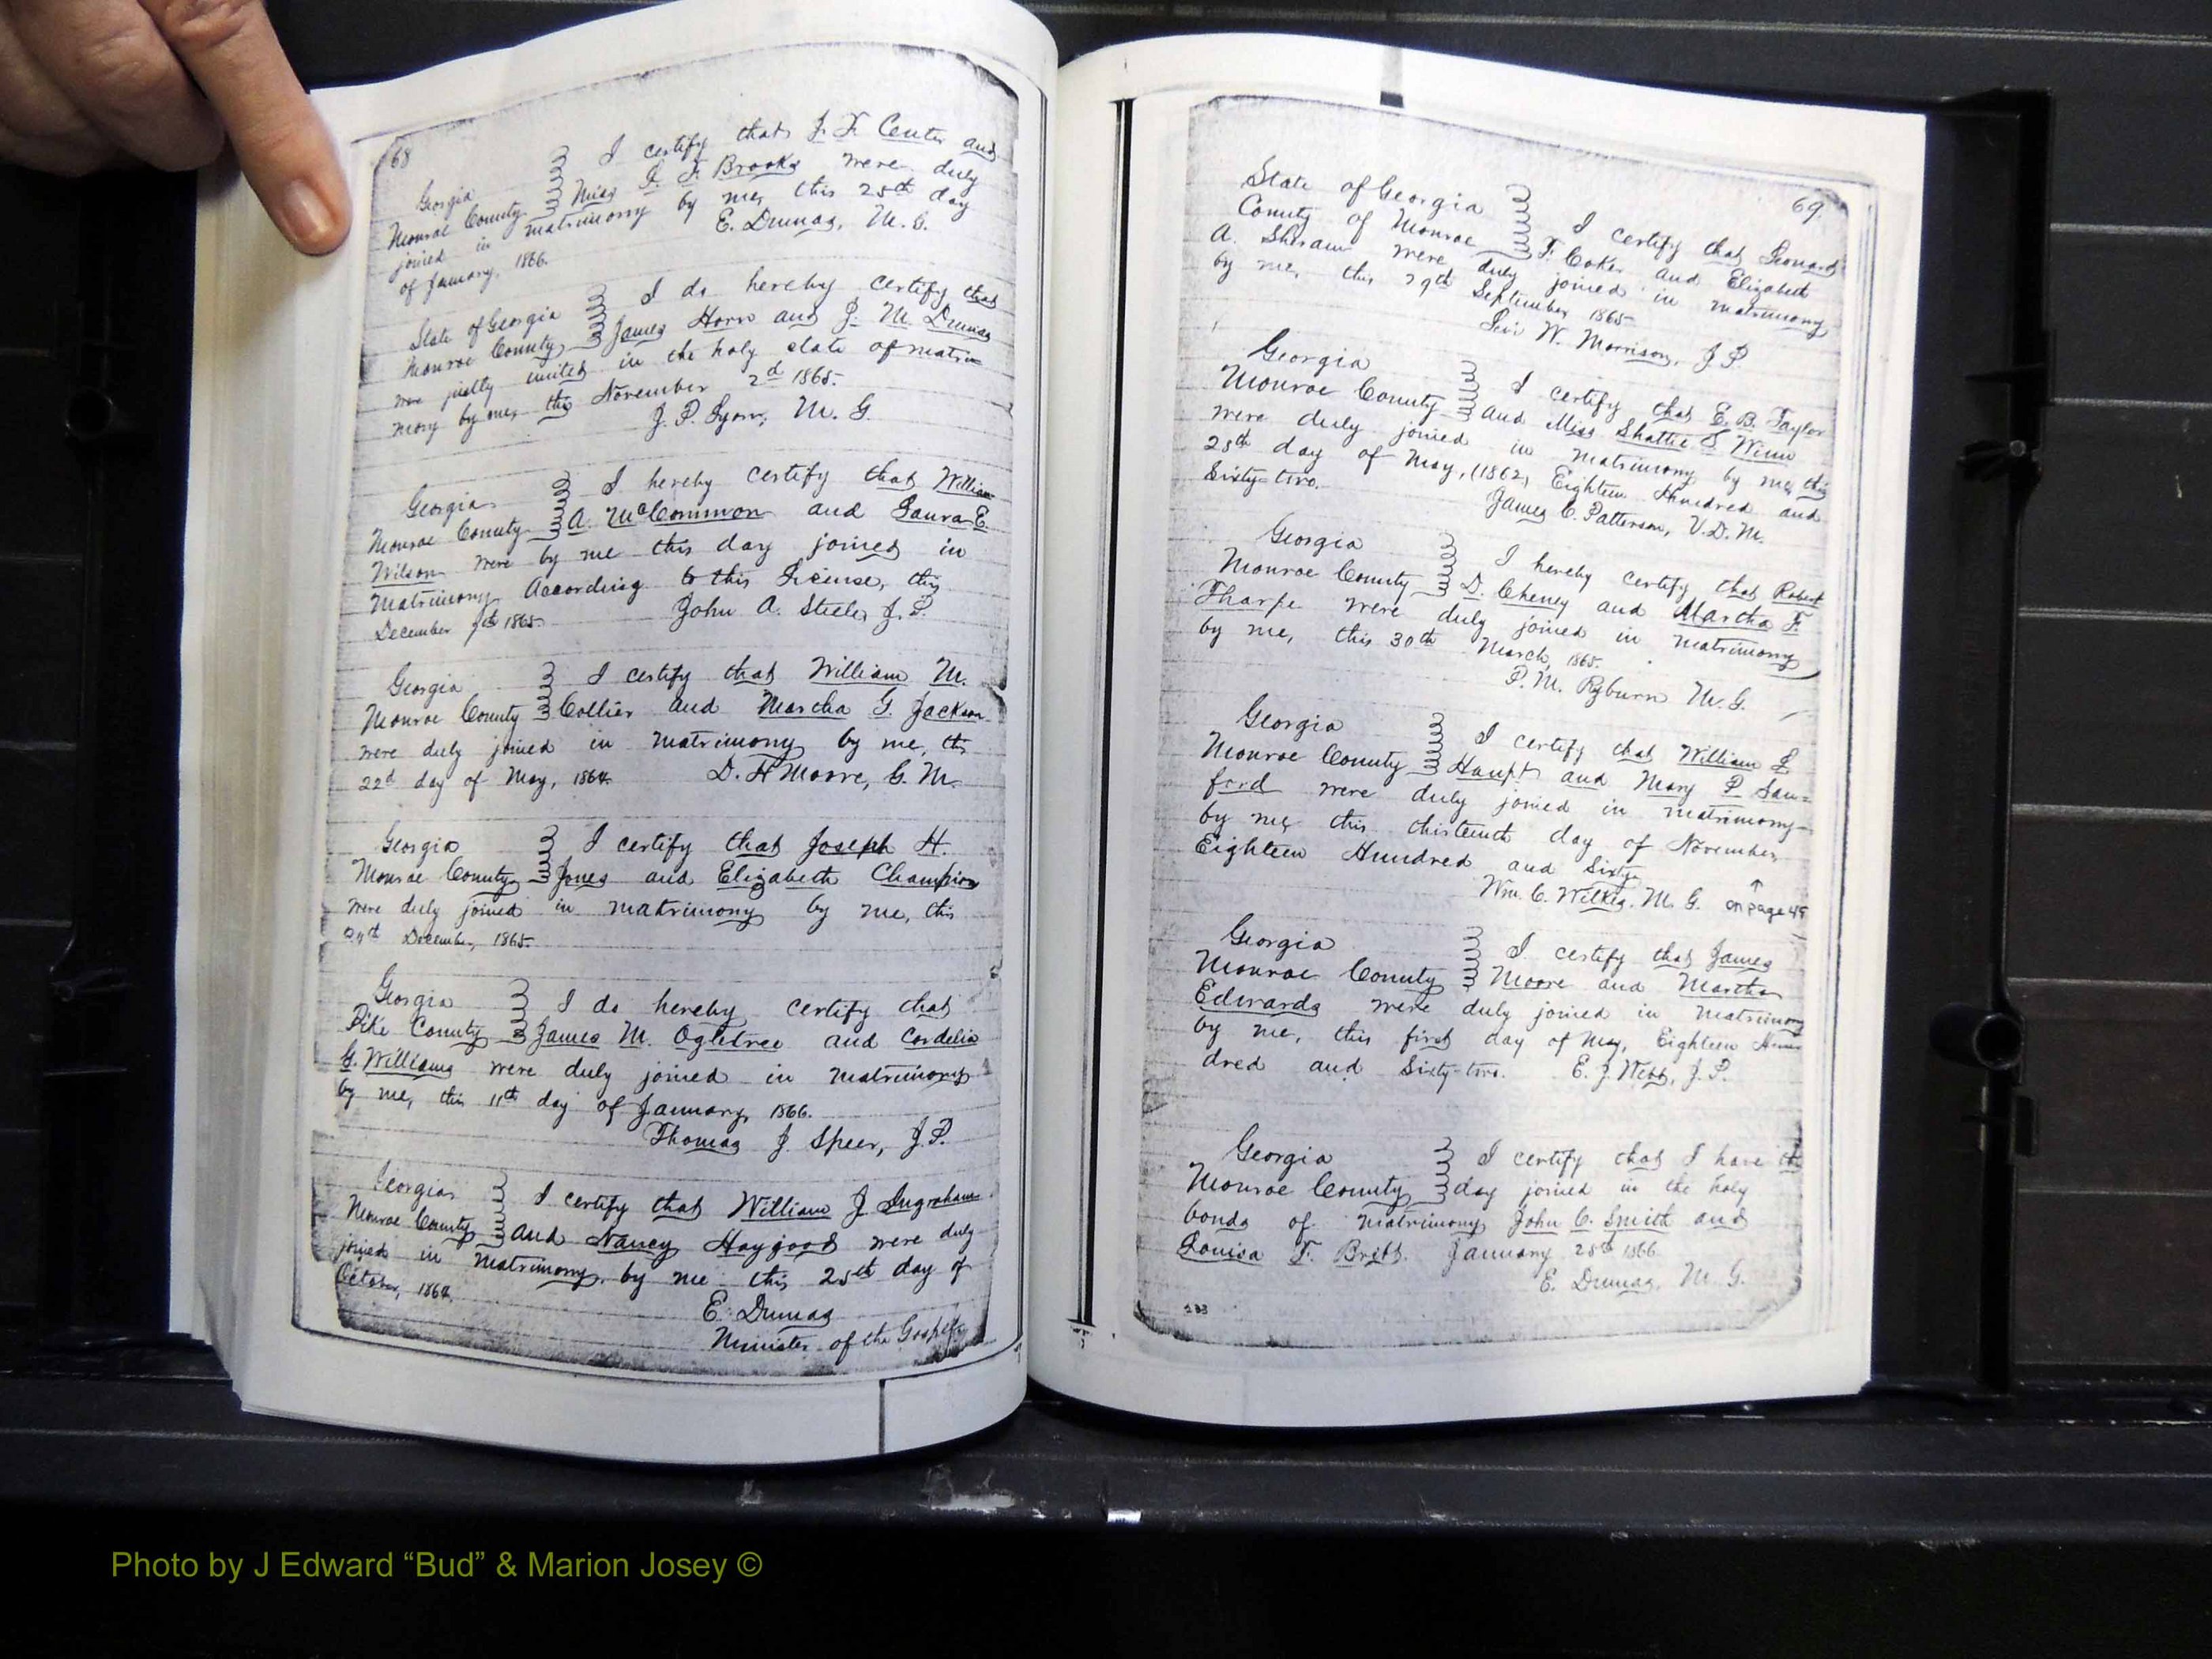 68
Georgia
Monroe County
I certify that J. F. Center and
Miss I. F. Brooks were duly
joined in matrimony by me, this 25th day
of January, 1866.
E. Dumas, M. G.
State of Georgia
Monroe County
I do hereby certify that
James Horn and J. M. Dumas
were justly united in the holy state of matri=
mony by me, this November 2d 1865.
J. P. Lyon, M. G.
Georgia
Monroe County
I hereby certify that William
A. McCommon and Laura E.
Wilson were by me this day joined in
Matrimony According to this License, this
December 7th 1865.
John A. Steele, J. P.
Georgia
Monroe County
I certify that William M.
Collier and Martha G. Jackson
were duly joined in matrimony by me, this
22d day of May, 1864.
D. H Moore, G. M.
Georgia
Monroe County
I certify that Joseph H.
Jones and Elizabeth Champion
were duly joined in matrimony by me, this
December, 1865.
Georgia
Pike County
I do hereby certify that
James M. Ogletree and Cordelia
G. Williams were duly joined in matrimony
by me, this 11th day of January, 1866.
Thomas J. Speer, J. P.
Georgia
Monroe County
I certify that William J Ingraham
and Nancy Haygood were duly
joined in matrimony by me this 25th day of
October, 1864.
E. Dumas
Minister of the Gospel
69.
State of Georgia
County of Monroe
I certify that Leonard
F. Coker and Elizabeth
A. Sheram were duly joined in matrimony
by me, this 29th September 1865
Levi W. Morrison, J. P.
Georgia
Monroe County
I certify that E. B. Taylor
and Miss Shattie S Winn
were duly joined in matrimony by me, this
25th day of May, (1862) Eighteen Hundred and
Sixty-two.
James C. Patterson, V. D. M.
Georgia
Monroe County
I hereby certify that Robert
D. Cheney and Martha F.
Tharpe were duly joined in matrimony
by me, this 30th March, 1865.
P. M. Ryburn M. G.
Georgia
Monroe County
I certify that William L
Haupt and Mary P San=
ford were duly joined in matrimony
by me, this thirteenth day of November,
Eighteen Hundred and Sixty
Wm. C. Wilkes, M. G.
on page 45
Georgia
Monroe County
I certify that James
Moore and Martha
Edwards were duly joined in matrimony
by me, this first day of May, Eighteen Hun
dred and Sixty-two. E. J. Webb, J. P.
Georgia
Monroe County
I certify that I have this
day joined in the holy
bonds of matrimony John C. Smith and
Louisa F. Britt. January 25th 1866
E. Dumas, M. G.
Photo by J Edward “Bud” & Marion Josey ©